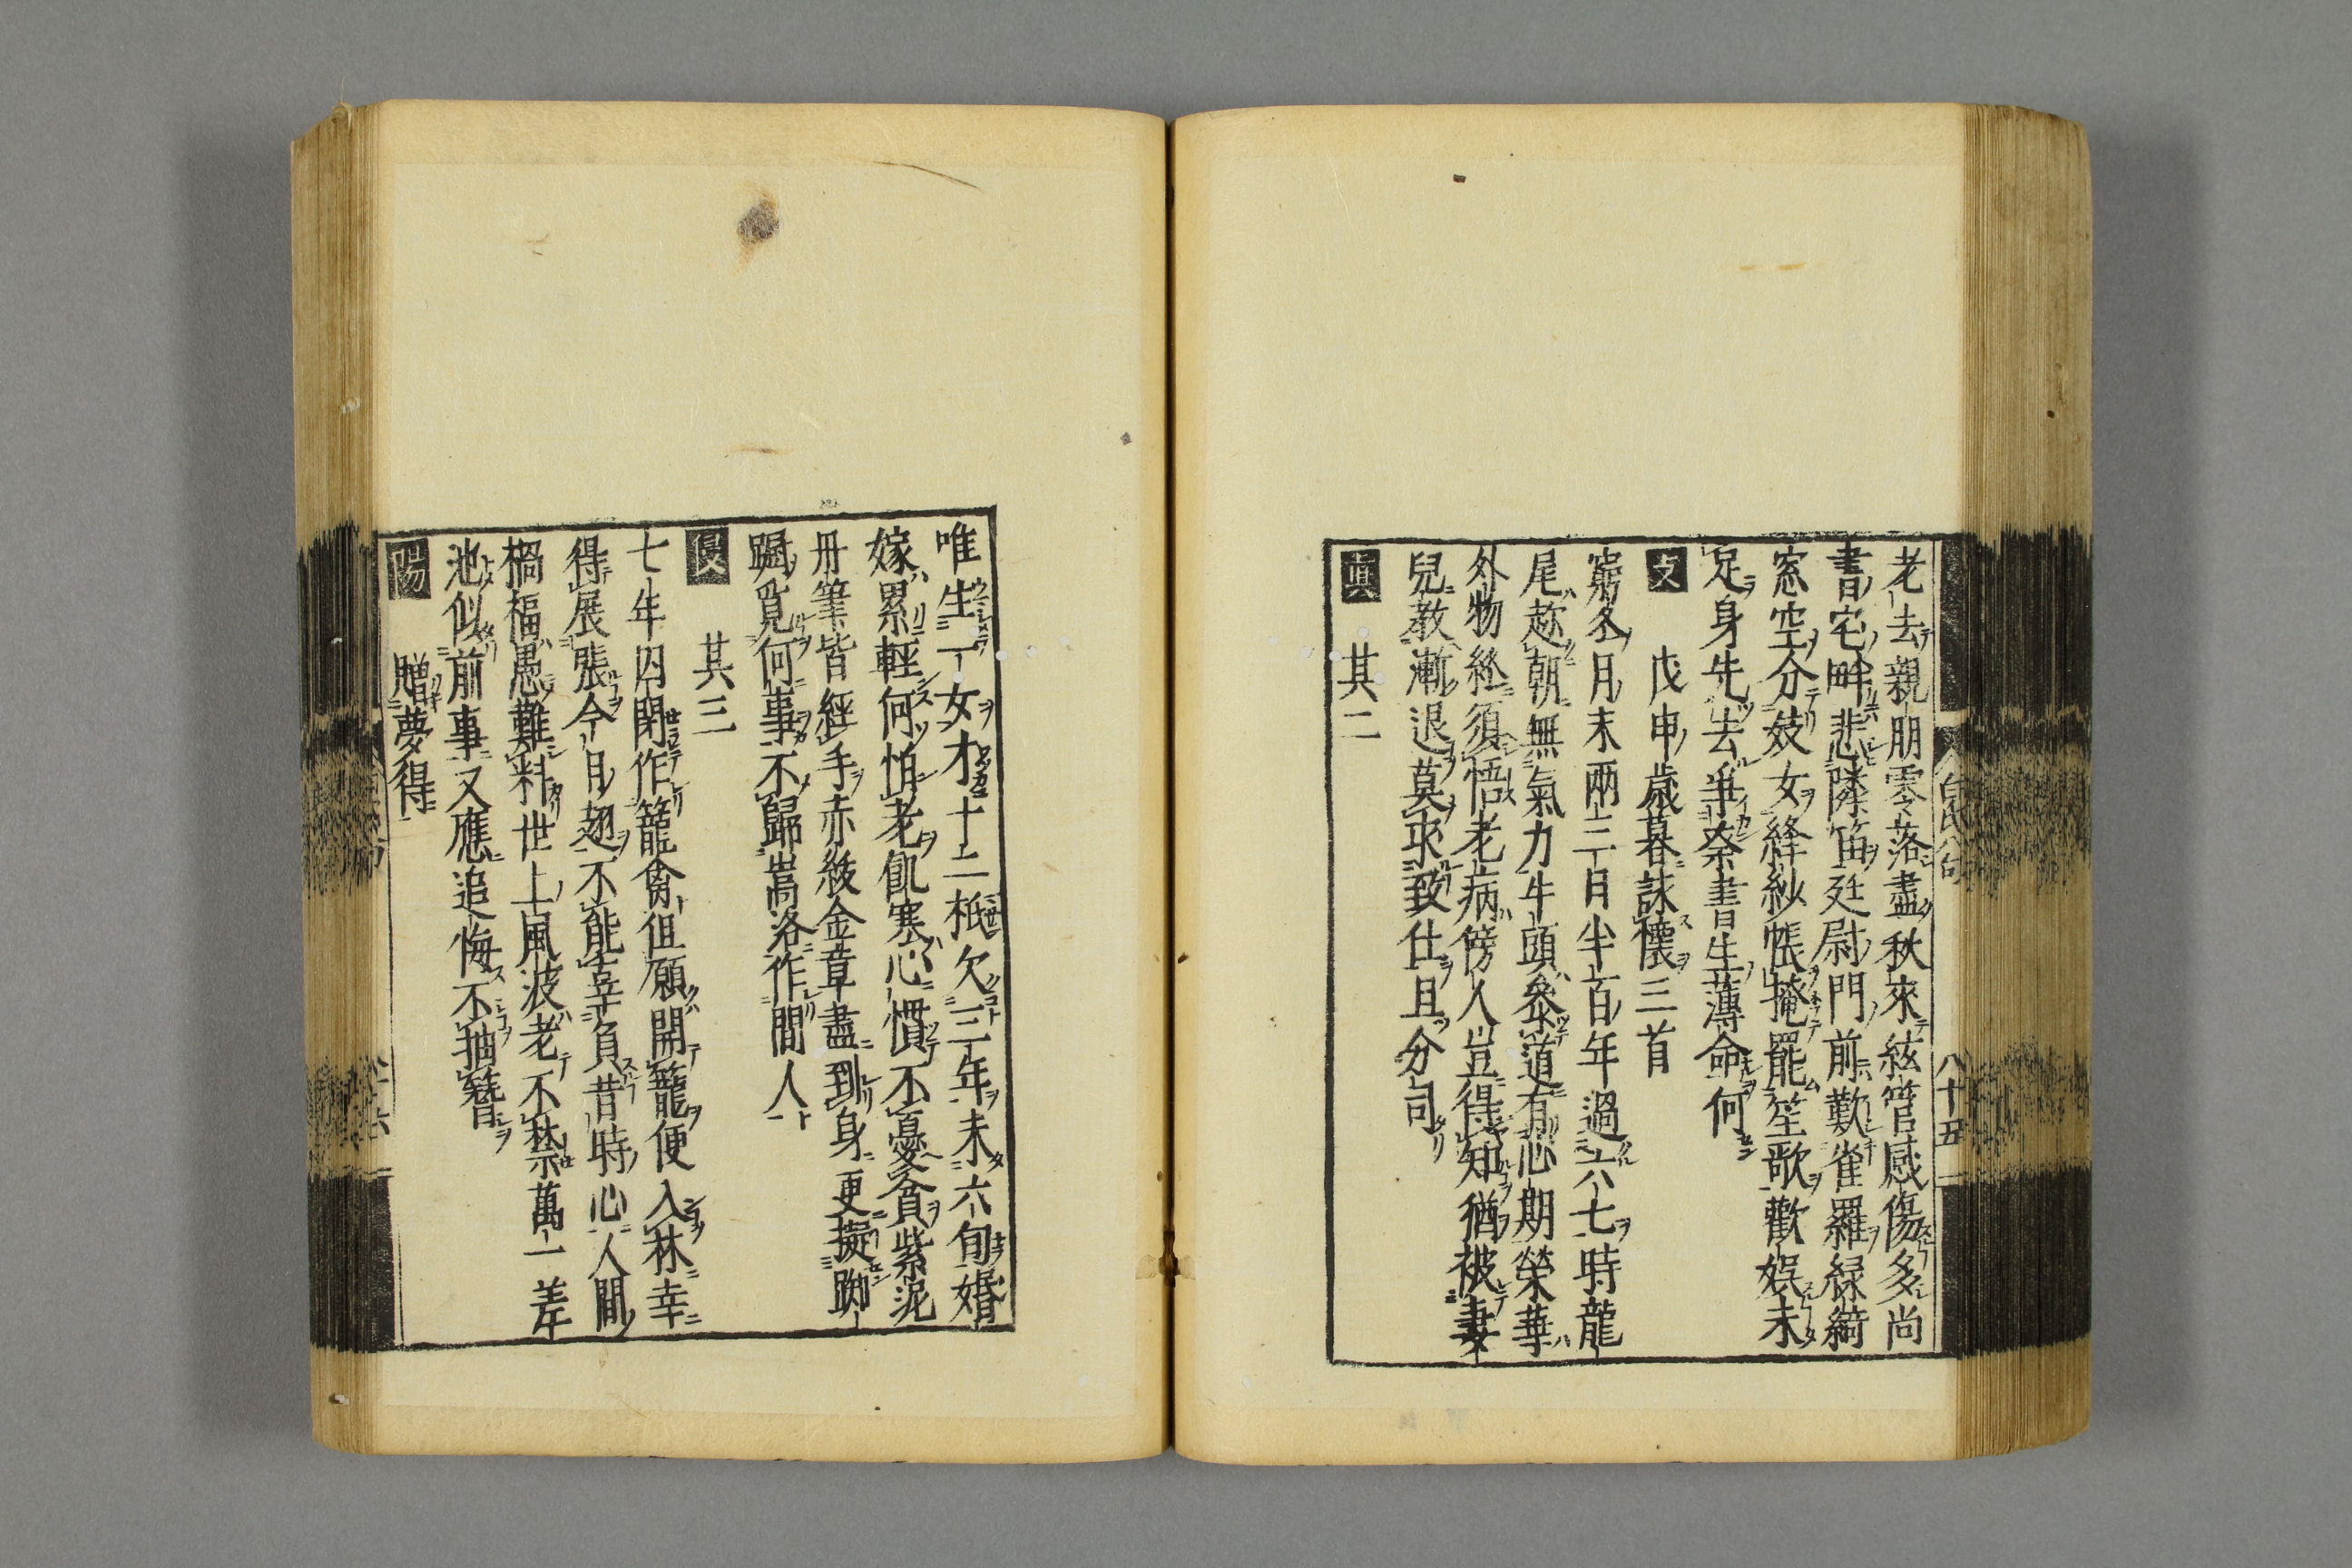 八十五
老去親朋零落盡秋來絃管感傷多尚
書宅畔悲隣笛廷尉門前歎雀羅緑綺
窓空分妓女絳紗帳掩罷笙歌歡娯未
足身先去爭奈書生薄命何
支 戊申歳暮詠懷三首
窮冬月末兩三日半百年過六七時龍
尾趂朝無氣力牛頭叅道有心期榮華
外物終須悟老病傍人豈得知猶被妻
兒教漸退莫求致仕且分司
眞 其二
唯生一女才十二秪欠三年未六旬婚
嫁累輕何怕老飢寒心慣不憂貧紫泥
丹筆皆經手赤紱金章盡到身更擬踟
蹰覓何事不歸嵩洛作間人
侵 其三
七年囚閉作籠禽但願開籠便入林幸
得展張今日翅不能辜負昔時心人間
禍福愚難料世上風波老不禁萬一差
池似前事又應追悔不抽簪
陽 贈夢得